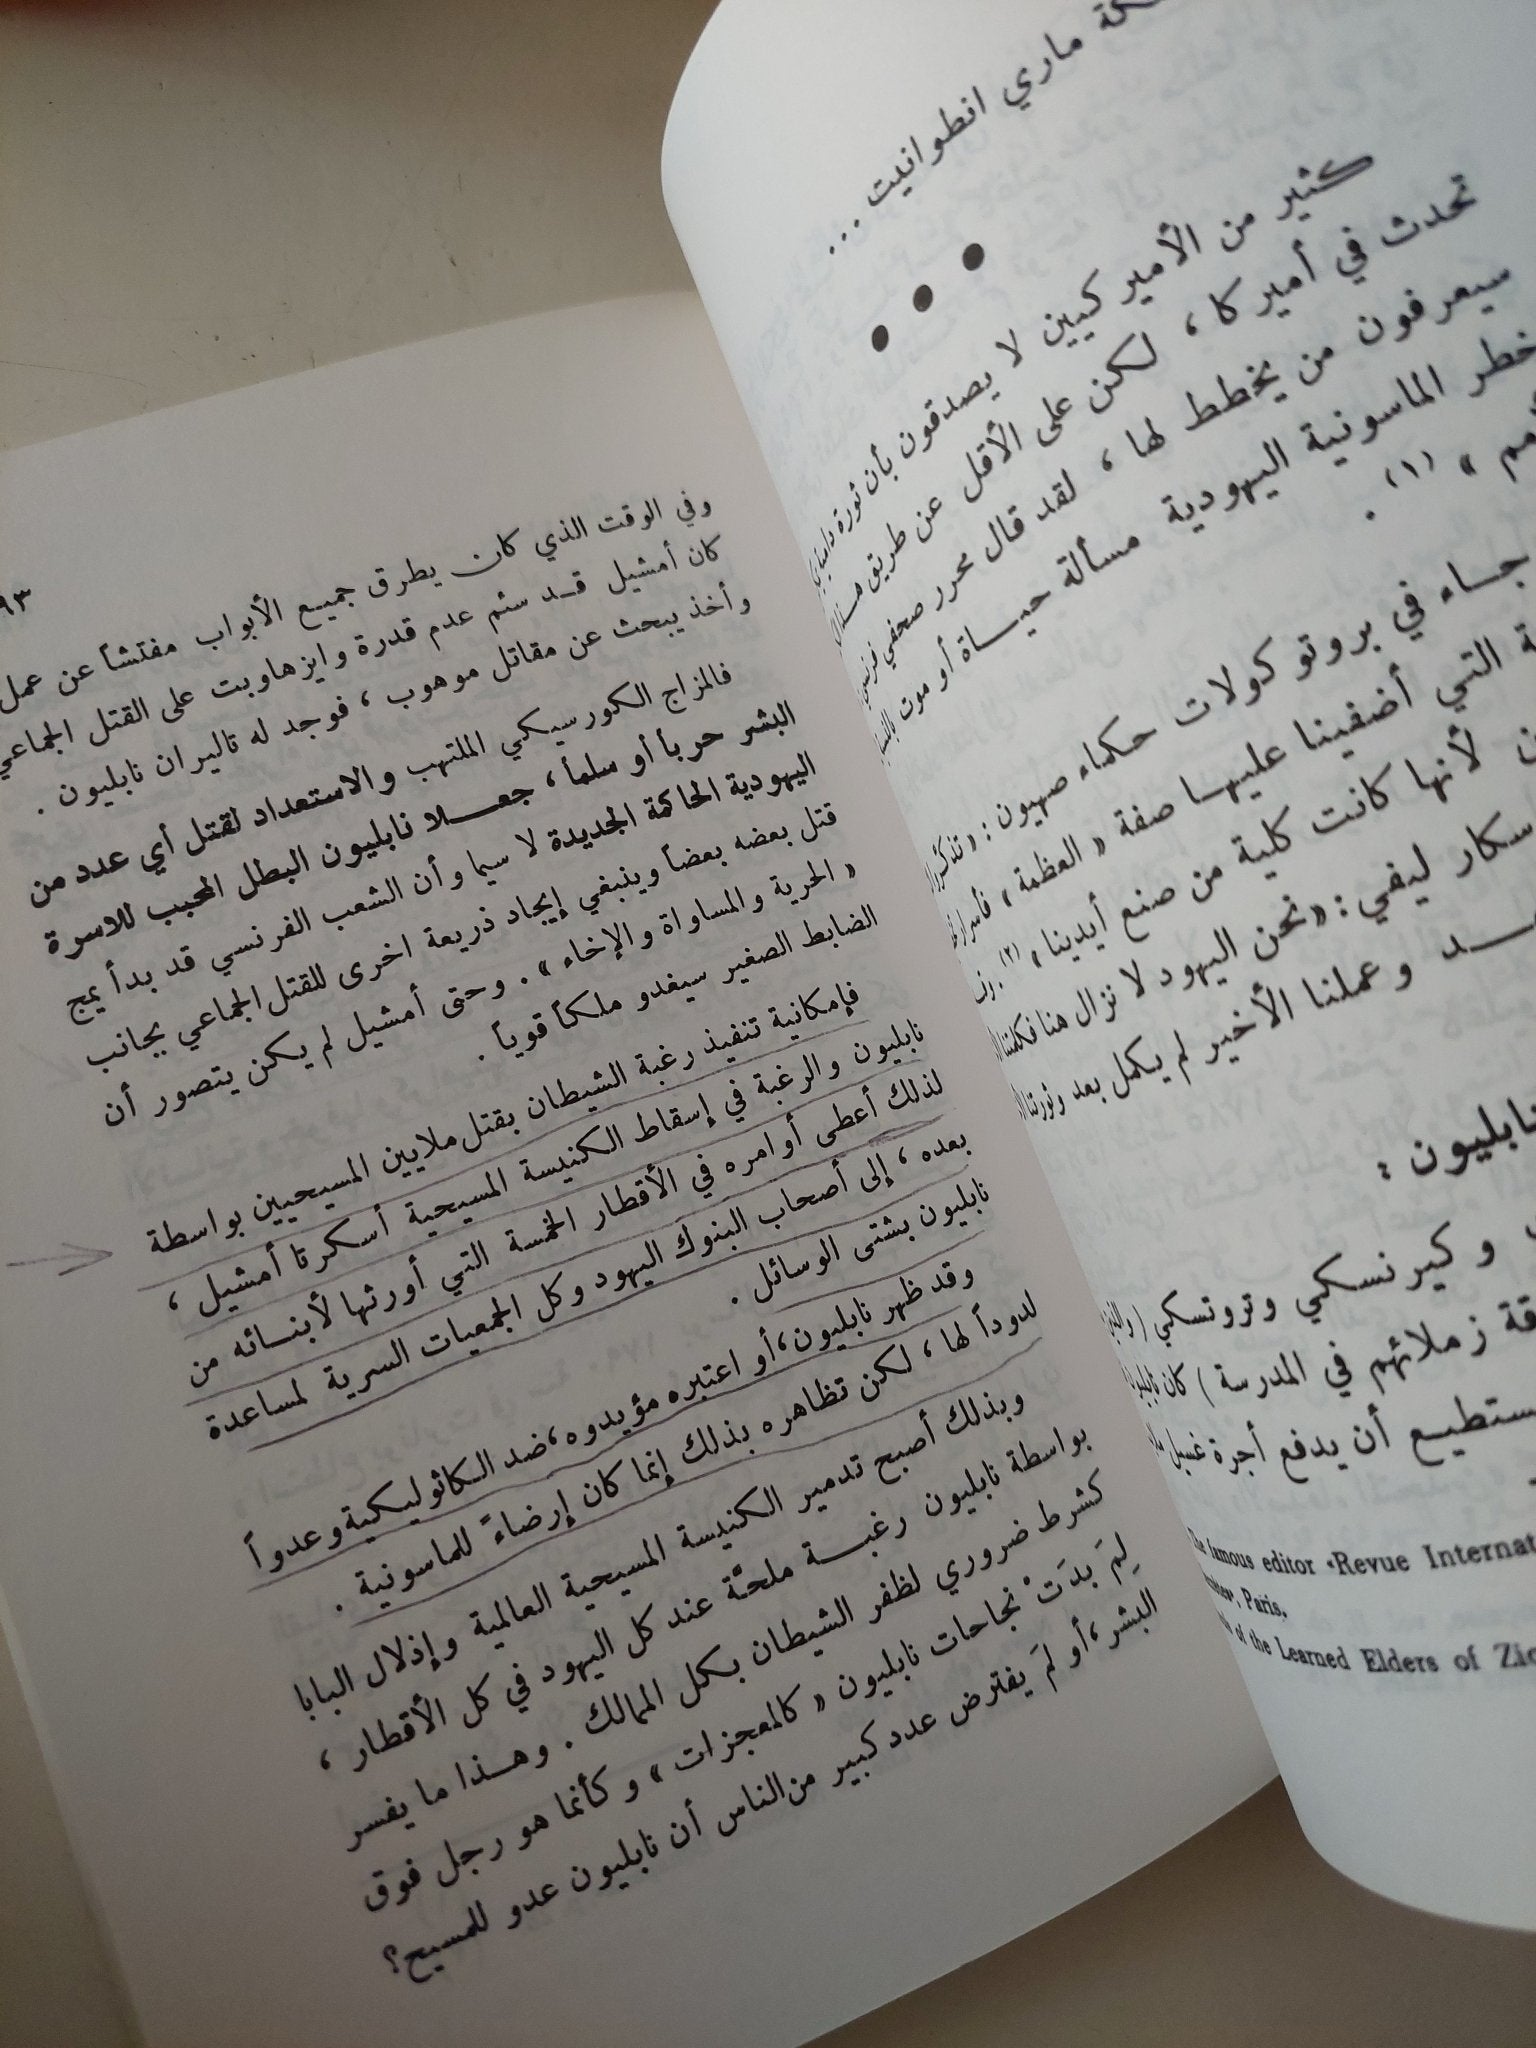 ماري انطوانيت ...
كثير من الأميركيين لا يصدقون بأن ثورة
تحدث في أميركا ، لكن على الأقل عن طريق
سيعرفون من يخطط لها ، لقد قال محرر صحفي
خطر الماسونية اليهودية مسألة حياة أو موت
» (١) .
جاء في بروتوكولات حكماء صهيون : «
التي أضفينا عليها صفة « العظمة »
لأنها كانت كلية من صنع أيدينا » (٢) .
ليفي : « نحن اليهود لا نزال هنا
وعملنا الأخير لم يكمل بعد
نابليون :
وكيرنسكي وتروتسكي
زملائهم في المدرسة ) كان
أن يدفع أجرة غسيل
famous editor «Revue
Paris.
of the Learned Elders of
٩٣
وفي الوقت الذي كان يطرق جميع الأبواب مفتشاً عن عمل
كان أمشيل قد سئم عدم قدرة وايزهاوبت على القتل الجماعي
وأخذ يبحث عن مقاتل موهوب ، فوجد له تاليران نابليون .
فالمزاج الكورسيكي الملتهب والاستعداد لقتل أي عدد من
البشر حرباً أو سلماً ، جعلا نابليون البطل المحبب للاسرة
اليهودية الحاكمة الجديدة لا سيما وأن الشعب الفرنسي قد بدأ يمج
قتل بعضه بعضاً وينبغي إيجاد ذريعة اخرى للقتل الجماعي بجانب
« الحرية والمساواة والإخاء » . وحتى أمشيل لم يكن يتصور أن
الضابط الصغير سيغدو ملكاً قوياً .
فإمكانية تنفيذ رغبة الشيطان بقتل ملايين المسيحيين بواسطة
نابليون والرغبة في إسقاط الكنيسة المسيحية أسكرتا أمشيل ،
لذلك أعطى أوامره في الأقطار الخمسة التي أورثها لأبنائه من
بعده ، إلى أصحاب البنوك اليهود وكل الجمعيات السرية لمساعدة
نابليون بشتى الوسائل .
وقد ظهر نابليون ، أو اعتبره مؤيدوه ، ضد الكاثوليكية وعدواً
لدوداً لها ، لكن تظاهره بذلك إنما كان إرضاءً للماسونية .
وبذلك أصبح تدمير الكنيسة المسيحية العالمية وإذلال البابا
بواسطة نابليون رغبة ملحّة عند كل اليهود في كل الأقطار ،
كشرط ضروري لظفر الشيطان بكل الممالك . وهذا ما يفسر
لِمَ بدَتْ نجاحات نابليون « كالمعجزات » وكأنما هو رجل فوق
البشر ، أو لمَ يفترض عدد كبير من الناس أن نابليون عدو للمسيح ؟